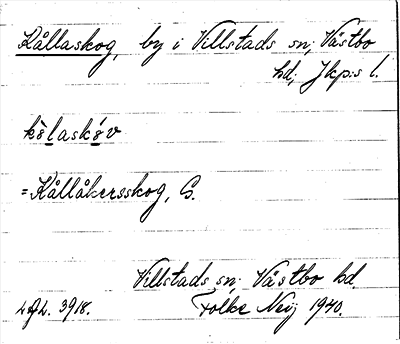 Kållaskog, by i Villstads sn, Västbo
hd, Jkp:s l.
kå̀laskó̤v
=Kållåkersskog, S.
Villstads sn, Västbo hd.
LAL. 3918. Folke Neij 1940.